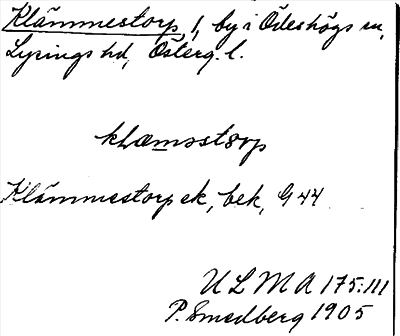 Klämmestorp 1, by i Ödeshögs sn,
Lysings hd, Österg. l.
klæmsstorp
Klämmestorp ek, bek, G 44
U L M A 175:111
P. Smedberg 1905